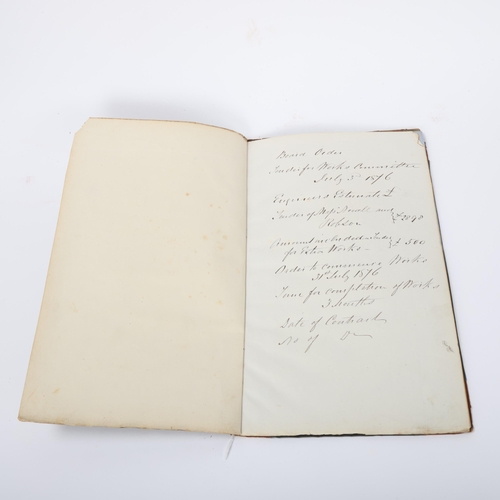 Board Order
Tender for Works Committee
July 3rd 1876
Engineers Estimate £
Tender of Messrs and
Robson } £2098
Amount included in Tender
for Extra Works } £500
Order to commence Works
31st July 1876
Time for completion of Works
3 Months
Date of Contract
No of Do